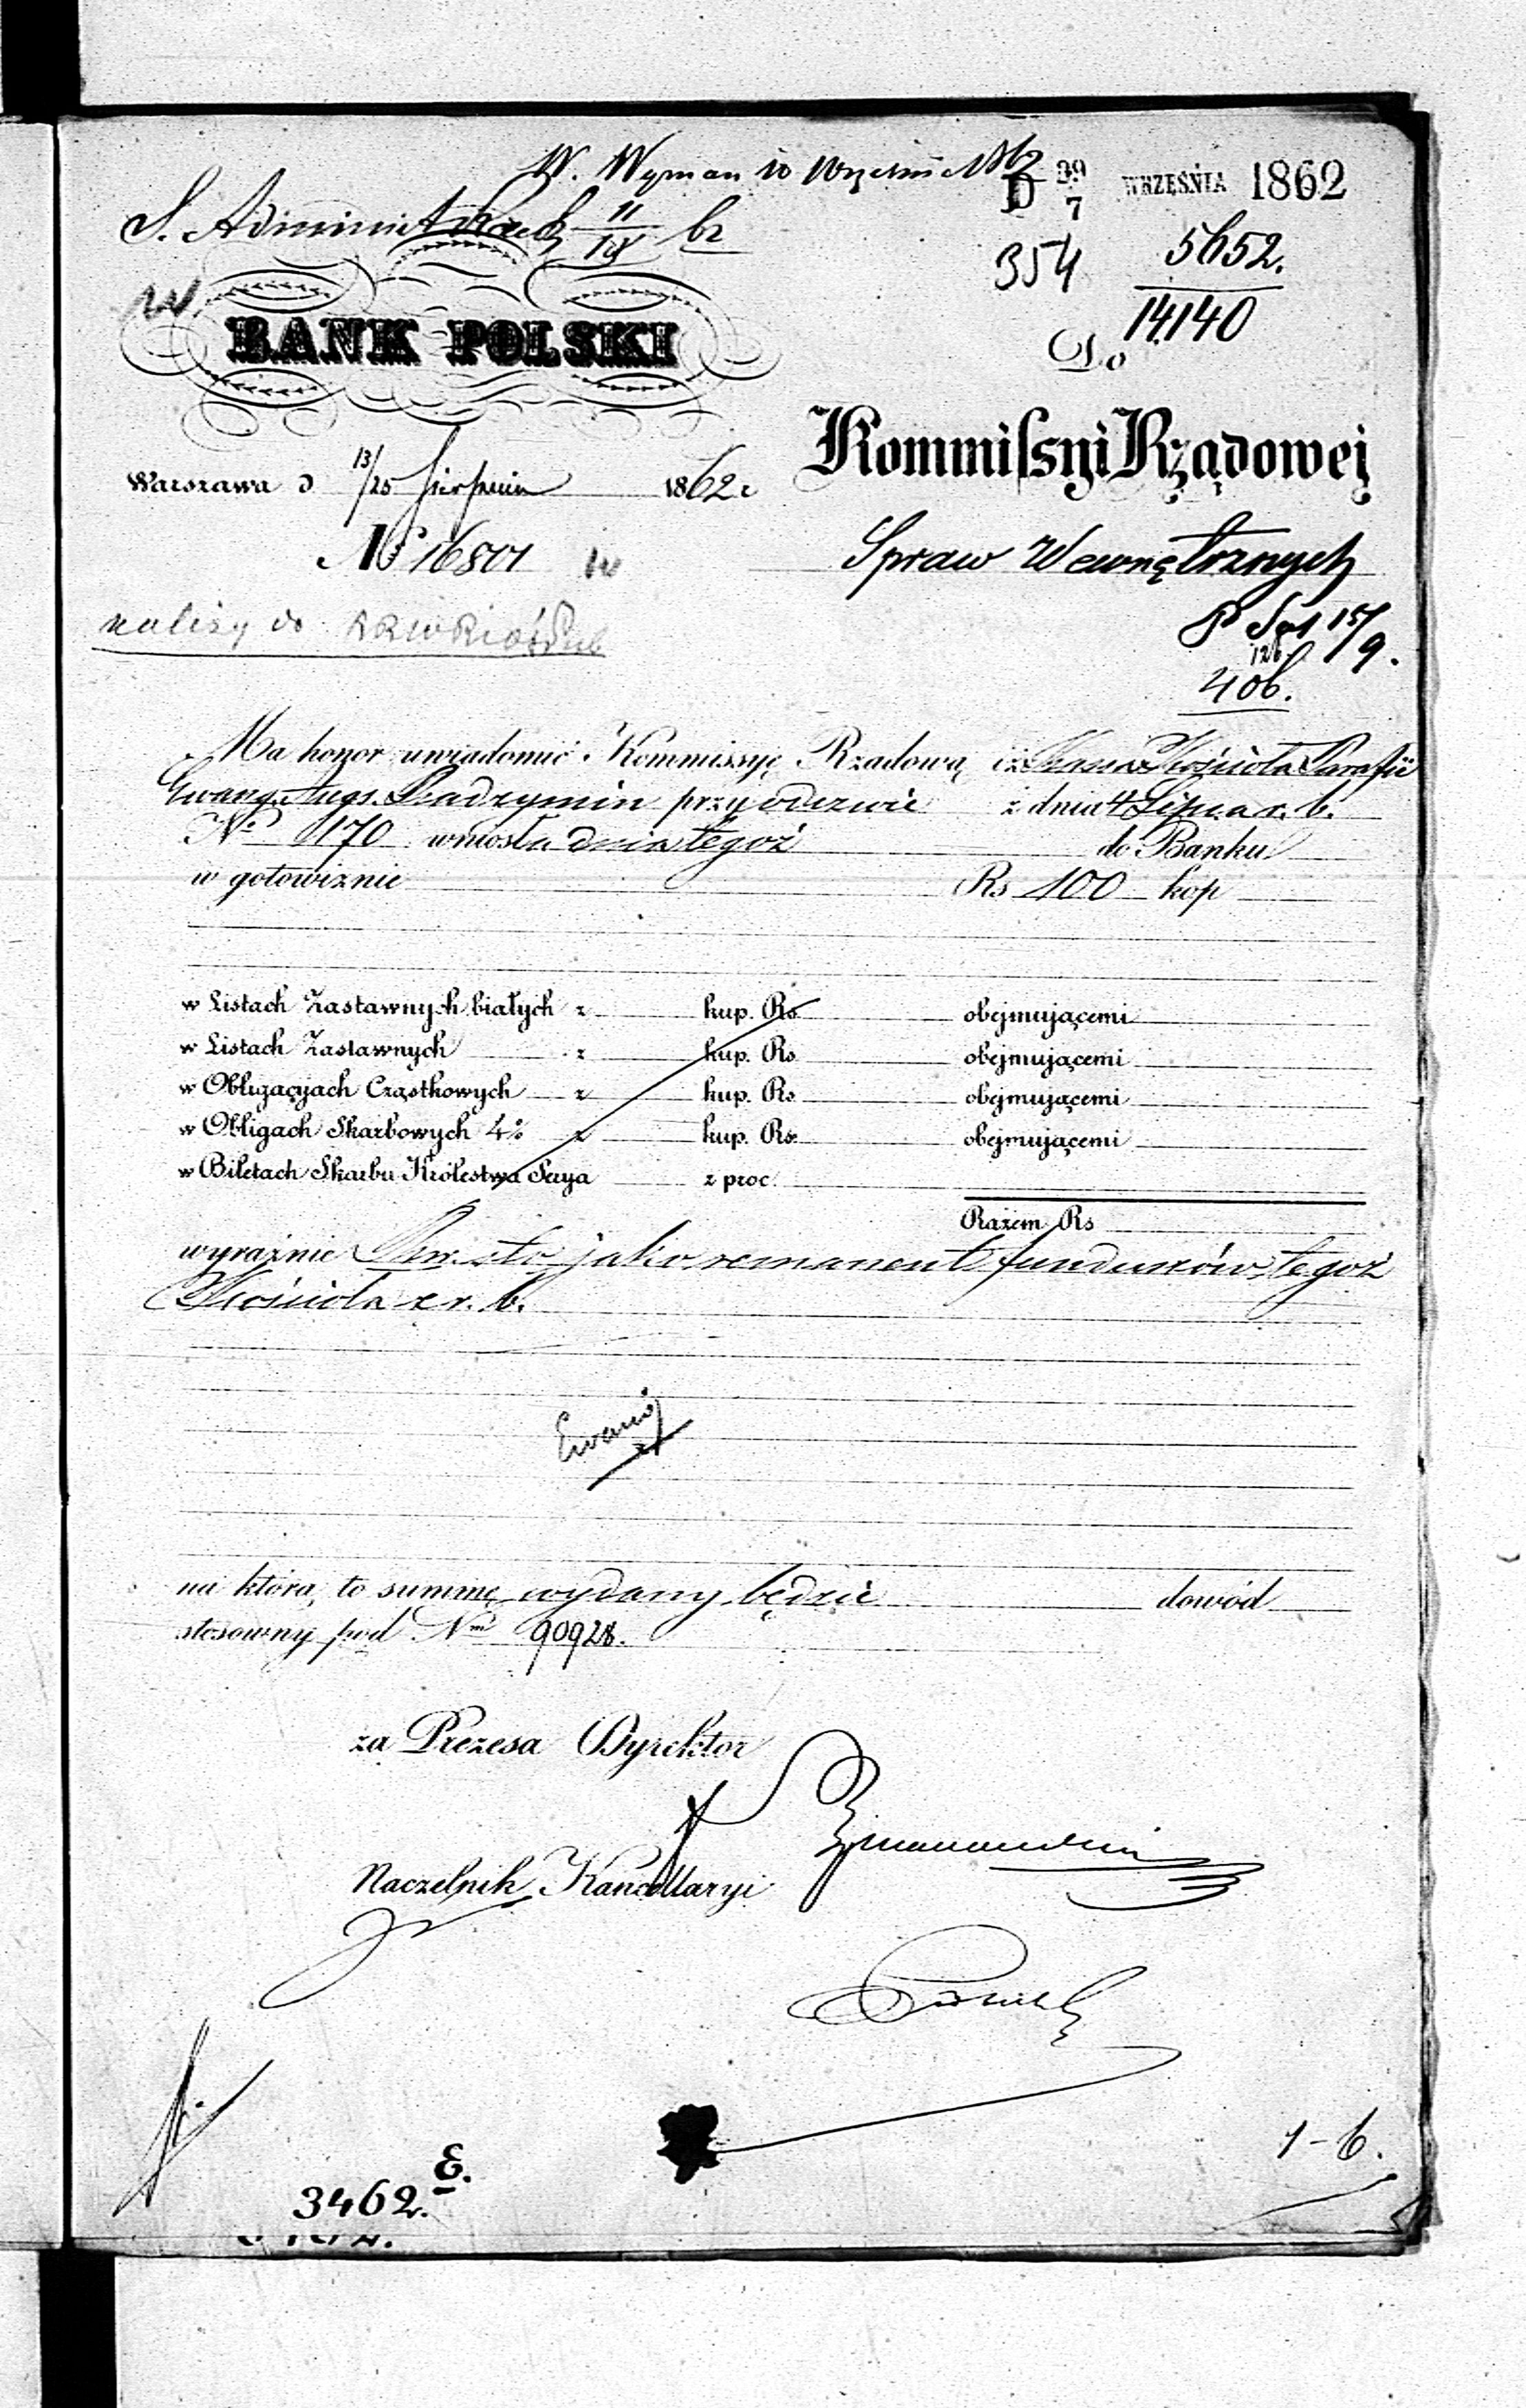 W. Wyman 10 Wrześni 1862
D 29/7 WRZEŚNIA 1862
S. Administ. 11/IX br
354 5652.
14140
BANK POLSKI
Do
Kommissyi Rządowej
Warszawa d 13/25 Sierpnia 1862 r
№ 16801
Spraw Wewnętrznych
należy do
15/9.
406.
Ma honor uwiadomić Kommissyę Rządową iż Kassa Kościoła Parafii
Ewang. Augs. Radzymin przy odezwie z dnia 4 Lipca r. b.
№ 170 wniosła dnia tegoż do Banku
w gotowiznie Rs 100 kop
w Listach Zastawnych białych z kup. Rs obejmującemi
w Listach Zastawnych z kup. Rs obejmującemi
w Obligacyach Cząstkowych z kup. Rs obejmującemi
w Obligach Skarbowych 4% z kup. Rs obejmującemi
w Biletach Skarbu Królestwa Serya z proc.
Razem Rs
wyraźnie Rsr. sto jako remanent funduszów tegoż
Kościoła z r. b.
na którą to summę wydany będzie dowód
stosowny pod Nm 90928.
za Prezesa Dyrektor
Naczelnik Kancellaryi
1-6.
3462. E.